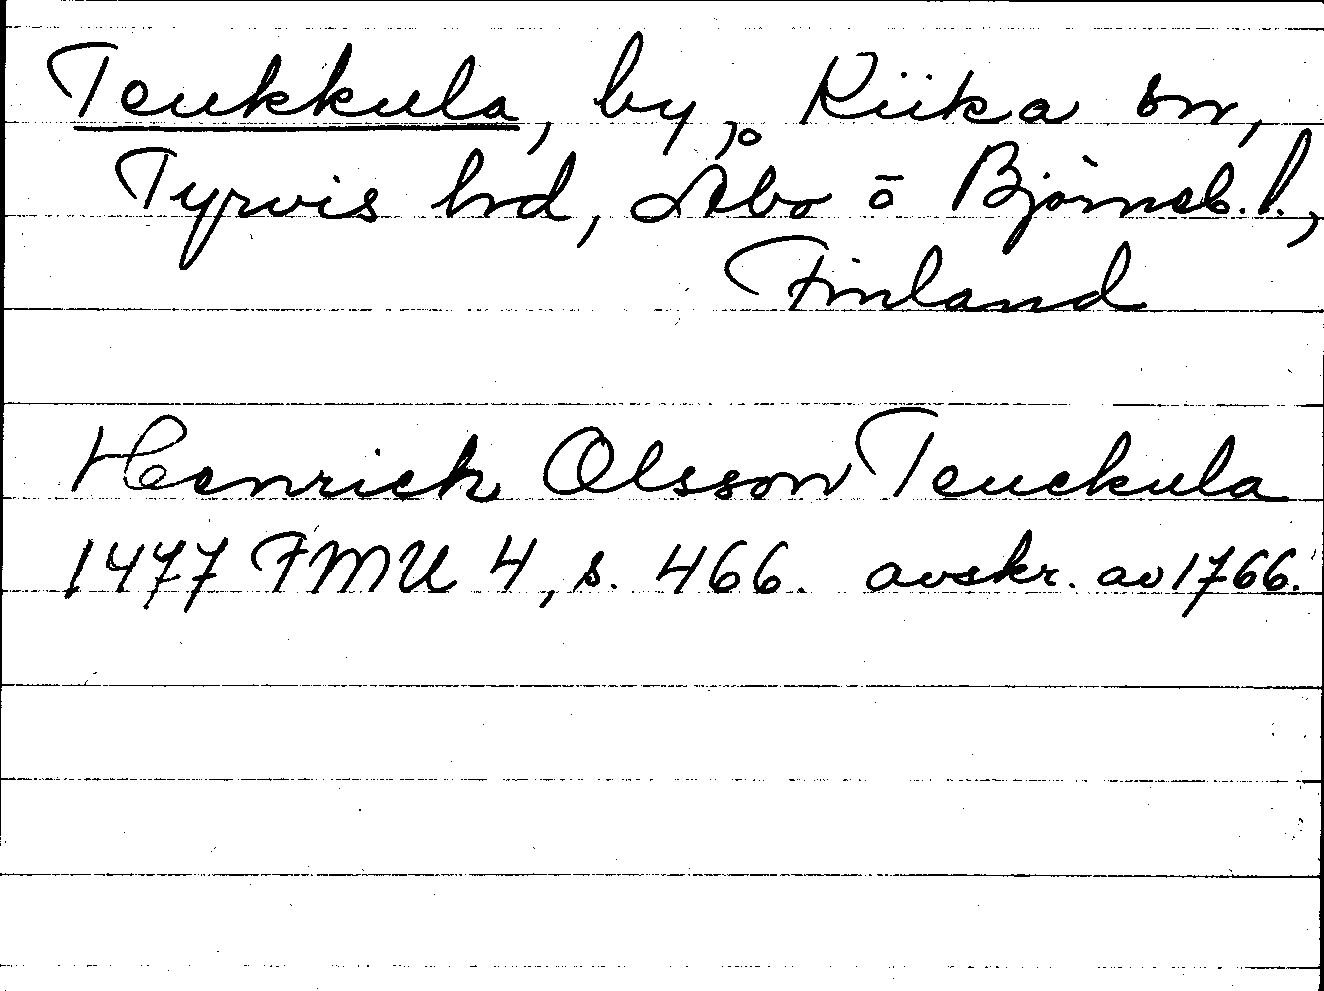 Teukkula, by, Kiika sn,
Tyrvis hd, Åbo ō Björneb. l.,
Finland
Henrick Olsson Teuckula
1477 FMU 4, s. 466. avskr. av 1766.